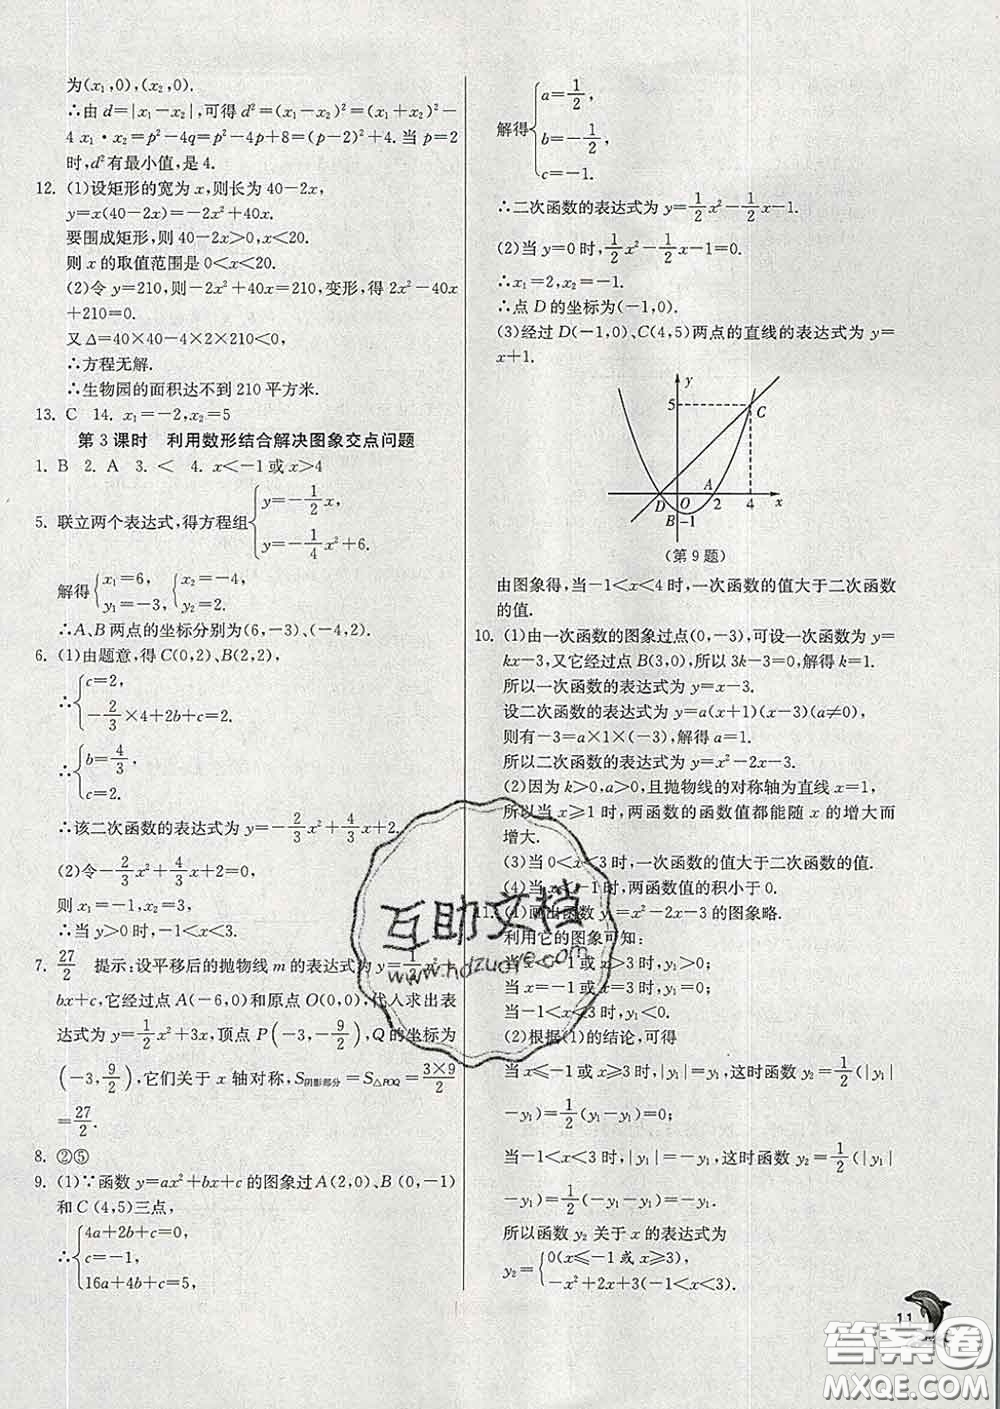 为(x₁,0),(x₂,0).
∴由 d=|x₁-x₂|,可得 d²=(x₁-x₂)²=(x₁+x₂)²-
4 x₁·x₂=p²-4q=p²-4p+8=(p-2)²+4.当 p=2
时,d²有最小值,是 4.
12. (1)设矩形的宽为 x,则长为 40-2x,
y=x(40-2x)=-2x²+40x.
要围成矩形,则 40-2x>0,x<20.
则 x 的取值范围是 0<x<20.
(2)令 y=210,则-2x²+40x=210,变形,得 2x²-40x
+210=0.
又 Δ=40×40-4×2×210<0,
∴方程无解.
∴生物园的面积达不到 210 平方米.
13. C 14. x₁=-2,x₂=5
第 3 课时 利用数形结合解决图象交点问题
1. B 2. A 3. < 4. x<-1或x>4
5. 联立两个表达式,得方程组{y=-1/2 x,
y=-1/4 x²+6.
解得{x₁=6, {x₂=-4,
y₁=-3, y₂=2,
∴A、B 两点的坐标分别为(6,-3)、(-4,2).
6. (1)由题意,得 C(0,2)、B(2,2),
∴{c=2,
-2/3×4+2b+c=2.
∴{b=4/3,
c=2.
∴该二次函数的表达式为 y=-2/3 x²+4/3 x+2.
(2)令-2/3 x²+4/3 x+2=0,
则 x₁=-1,x₂=3.
∴当 y>0 时,-1<x<3.
7. 27/2 提示:设平移后的抛物线 m 的表达式为 y=1/2 x²+
bx+c,它经过点 A(-6,0)和原点 O(0,0),代入求出表
达式为 y=1/2 x²+3x,顶点 P(-3,-9/2),Q 的坐标为
(-3,9/2),它们关于 x 轴对称,S阴影部分=S△POQ=3×9/2
=27/2.
8. ②⑤
9. (1)∵函数 y=ax²+bx+c 的图象过A(2,0)、B(0,-1)
和 C(4,5)三点,
∴{4a+2b+c=0,
c=-1,
16a+4b+c=5,
解得{a=1/2,
b=-1/2,
c=-1.
∴二次函数的表达式为 y=1/2 x²-1/2 x-1.
(2)当 y=0 时,1/2 x²-1/2 x-1=0.
∴x₁=2,x₂=-1.
∴点 D 的坐标为(-1,0).
(3)经过 D(-1,0)、C(4,5)两点的直线的表达式为 y=
x+1.
y
5
C
A
D O 2 4 x
B -1
(第 9 题)
由图象得,当-1<x<4 时,一次函数的值大于二次函数
的值.
10. (1)由一次函数的图象过点(0,-3),可设函数为 y=
kx-3,又它经过点 B(3,0),所以 3k-3=0,解得 k=1.
所以一次函数的表达式为 y=x-3.
设二次函数的表达式为 y=a(x+1)(x-3)(a≠0),
则有-3=a×1×(-3),解得 a=1.
所以二次函数的表达式为 y=x²-2x-3.
(2)因为 k>0,a>0,且抛物线的对称轴为直线 x=1,
所以当 x≥1 时,两函数的函数值都能随 x 的增大而
增大.
(3)当 0<x<3 时,一次函数的值大于二次函数的值.
(4)当 x<-1 时,两函数值的积小于 0.
11. (1)画出函数 y₁=x²-2x-3 的图象略.
利用它的图象可知:
当 x<-1 或 x>3 时,y₁>0;
当 x=-1 或 x=3 时,y₁=0;
当-1<x<3时,y₁<0.
(2)根据(1)的结论,可得
当 x≤-1 或 x≥3 时,|y₁|=y₁,这时函数 y₂=1/2(|y₁|
-y₁)=1/2(y₁-y₁)=0;
当-1<x<3 时,|y₁|=-y₁,这时函数 y₂=1/2(|y₁|
-y₁)=1/2(-y₁-y₁)=-y₁.
所以函数 y₂ 关于 x 的表达式为
y₂={0(x≤-1 或 x≥3),
-x²+2x+3(-1<x<3).
11
互助文档
www.hdzuoye.com
答案圈
MXQE.COM